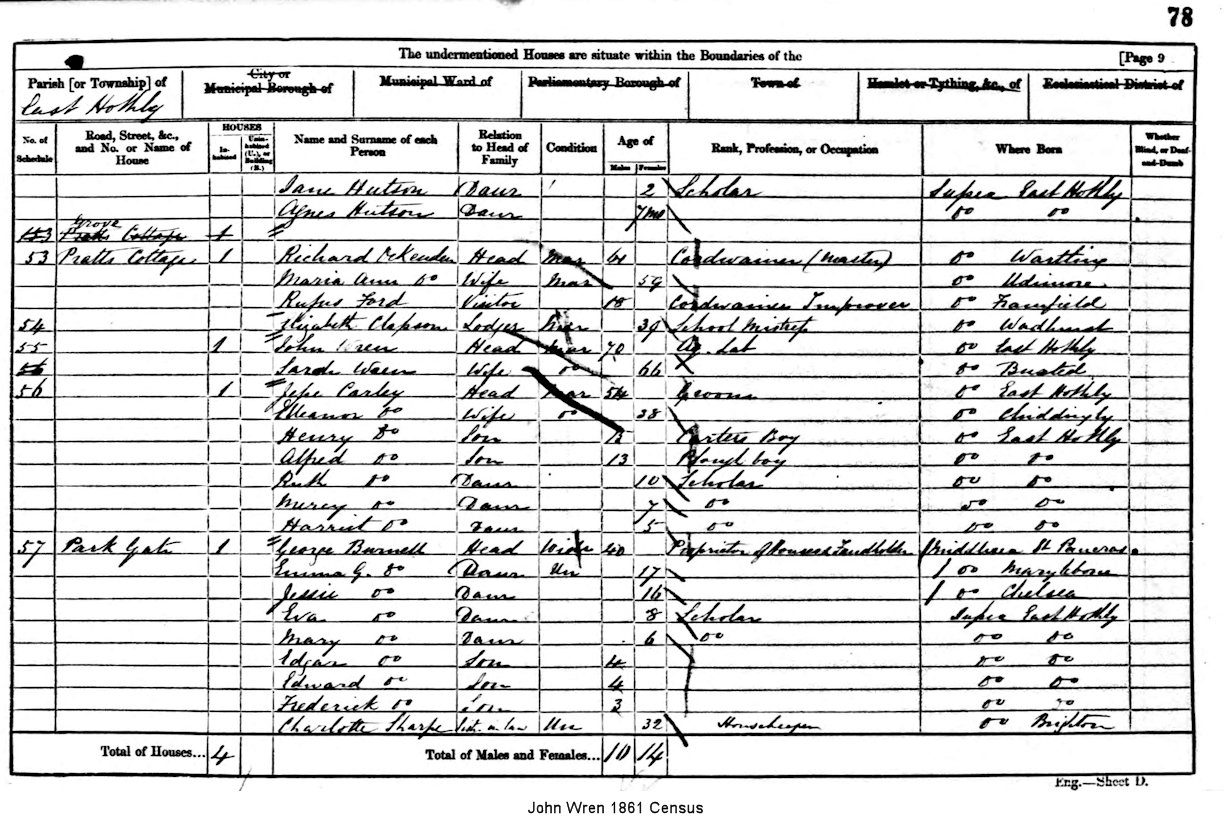 78
The undermentioned Houses are situate within the Boundaries of the [Page 9
Parish [or Township] of City or Municipal Borough of Municipal Ward of Parliamentary Borough of Town of Hamlet or Tything, &c., of Ecclesiastical District of
East Hothly
No. of Schedule Road, Street, &c., and No. or Name of House HOUSES Inhabited Uninhabited (U.), or Building (B.) Name and Surname of each Person Relation to Head of Family Condition Age of Males Females Rank, Profession, or Occupation Where Born Whether Blind, or Deaf-and-Dumb
Jane Hutson Daur 2 Scholar Sussex East Hothly
Agnes Hutson Daur 7 mo Do Do
Grove
153 Pratts Cottage 1
53 Pratts Cottage 1 Richard McKeuden Head Mar 61 Cordwainer (Master) Do Wartling
Maria Ann Do Wife Mar 59 Do Udimore
Rufus Ford Visitor 18 Cordwainer Improver Do Framfield
54 Elizabeth Clapson Lodger 39 School Mistress Do Wadhurst
55 1 John Wren Head Mar 70 Ag. Lab Do East Hothly
56 Sarah Wren Wife Do 66 Do Buxted
56 1 Jesse Carley Head Mar 54 Groom Do East Hothly
Elleanor Do Wife Do 38 Do Chiddingly
Henry Do Son Carters Boy Do East Hothly
Alfred Do Son 13 Plough boy Do Do
Ruth Do Daur 10 Scholar Do Do
Mercy Do Daur 7 Do Do Do
Harriet Do Daur 5 Do Do Do
57 Park Gate 1 George Burnell Head Widr 40 Proprietor of Houses & Fundholder Middlesex St Pancras
Emma G. Do Daur Un 17 Do Marylebone
Jessie Do Daur 16 Do Chelsea
Eva Do Daur 8 Scholar Sussex East Hothly
Mary Do Daur 6 Do Do Do
Edgar Do Son 4 Do Do
Edward Do Son 4 Do Do
Frederick Do Son 3 Do Do
Charlotte Sharpe Sist. in law Un 32 Housekeeper Do Brighton
Total of Houses... 4 Total of Males and Females... 10 14
Eng.—Sheet D.
John Wren 1861 Census